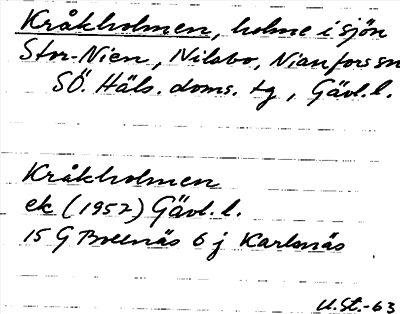 Kråkholmen, holme i sjön
Stor-Nien, Nilsbo, Nianfors sn
SÖ. Häls. doms. tg, Gävl. l.
Kråkholmen
ek (1952) Gävl. l.
15 G Bollnäs 6 j Karlsnäs
U.St.-63